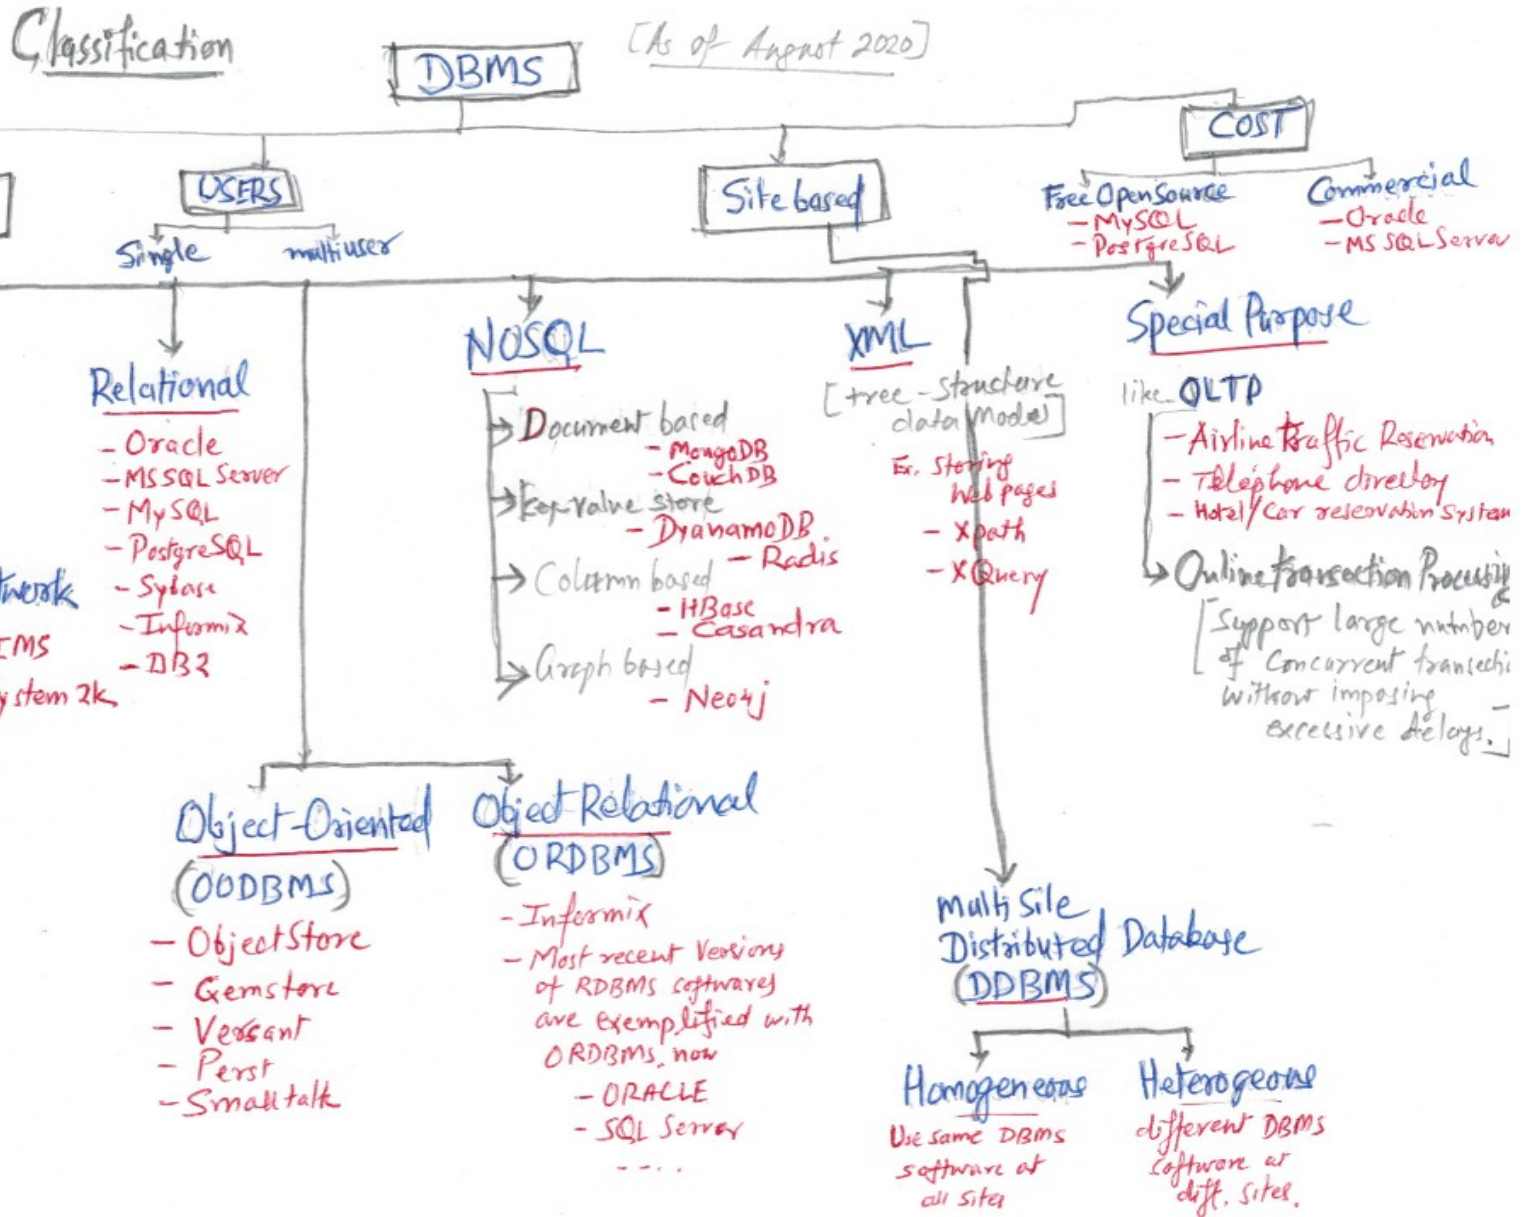 Classification
DBMS
[As of August 2020]
COST
USERS
Site based
Free Open Source
- MySQL
- PostgreSQL
Commercial
- Oracle
- MS SQL Server
Single
multiuser
Relational
- Oracle
- MSSQL Server
- MySQL
- PostgreSQL
- Sybase
- Informix
- DB2
twork
IMS
ystem 2k
NOSQL
Document based
- MongoDB
- CouchDB
Key-value store
- DyanamoDB
- Radis
Column based
- HBase
- Casandra
Graph based
- Neo4j
XML
[tree-structure
data Model]
Ex. Storing
Web pages
- Xpath
- XQuery
Special Purpose
like OLTP
- Airline traffic Reservation
- Telephone directoy
- Hotel/Car reservation System
Online transaction Processin
[Support large number
of Concurrent transecti
without imposing
excessive delays.]
Object-Oriented
(OODBMS)
- ObjectStore
- Gemstore
- Versant
- Perst
- Smalltalk
Object-Relational
(ORDBMS)
- Informix
- Most recent Versions
of RDBMS softwares
are exemplified with
ORDBMS. now
- ORACLE
- SQL Server
- - . .
Multi Site
Distributed Database
(DDBMS)
Homogeneous
Use same DBMS
software at
all sites
Heterogeous
different DBMS
software at
diff. sites.